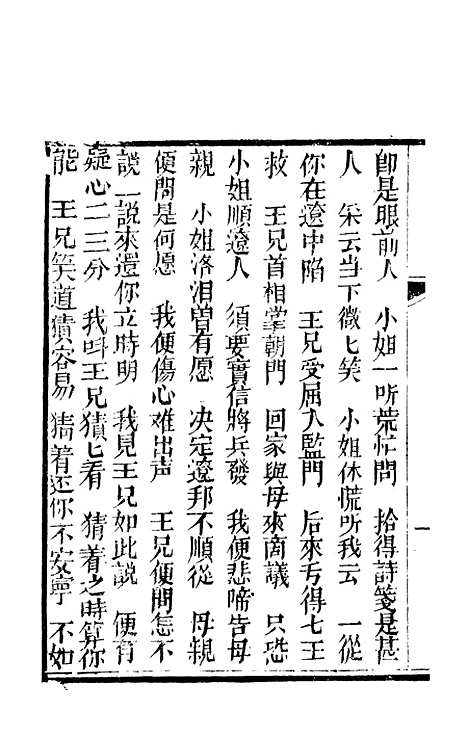 即是眼前人　小姐一听荒忙問　拾得詩箋是甚
人　采云当下微匕笑　小姐休慌听我云　一從
你在遼中陷　王兄受屈入監門　后來亏得七王
救　王兄首相掌朝門　回家與母來商議　只恐
小姐順遼人　須要實信將兵發　我便悲啼告母
親　小姐洛泪曽有愿　决定遼邦不順從　母親
便問是何愿　我便傷心难出声　王兄便問怎不
説　一説來還你立時明　我見王兄如此説　便有
疑心二三分　我呌王兄猜匕看　猜着之時算你
能　王兄笑道猜容易　猜着还你不安寧　不如
一